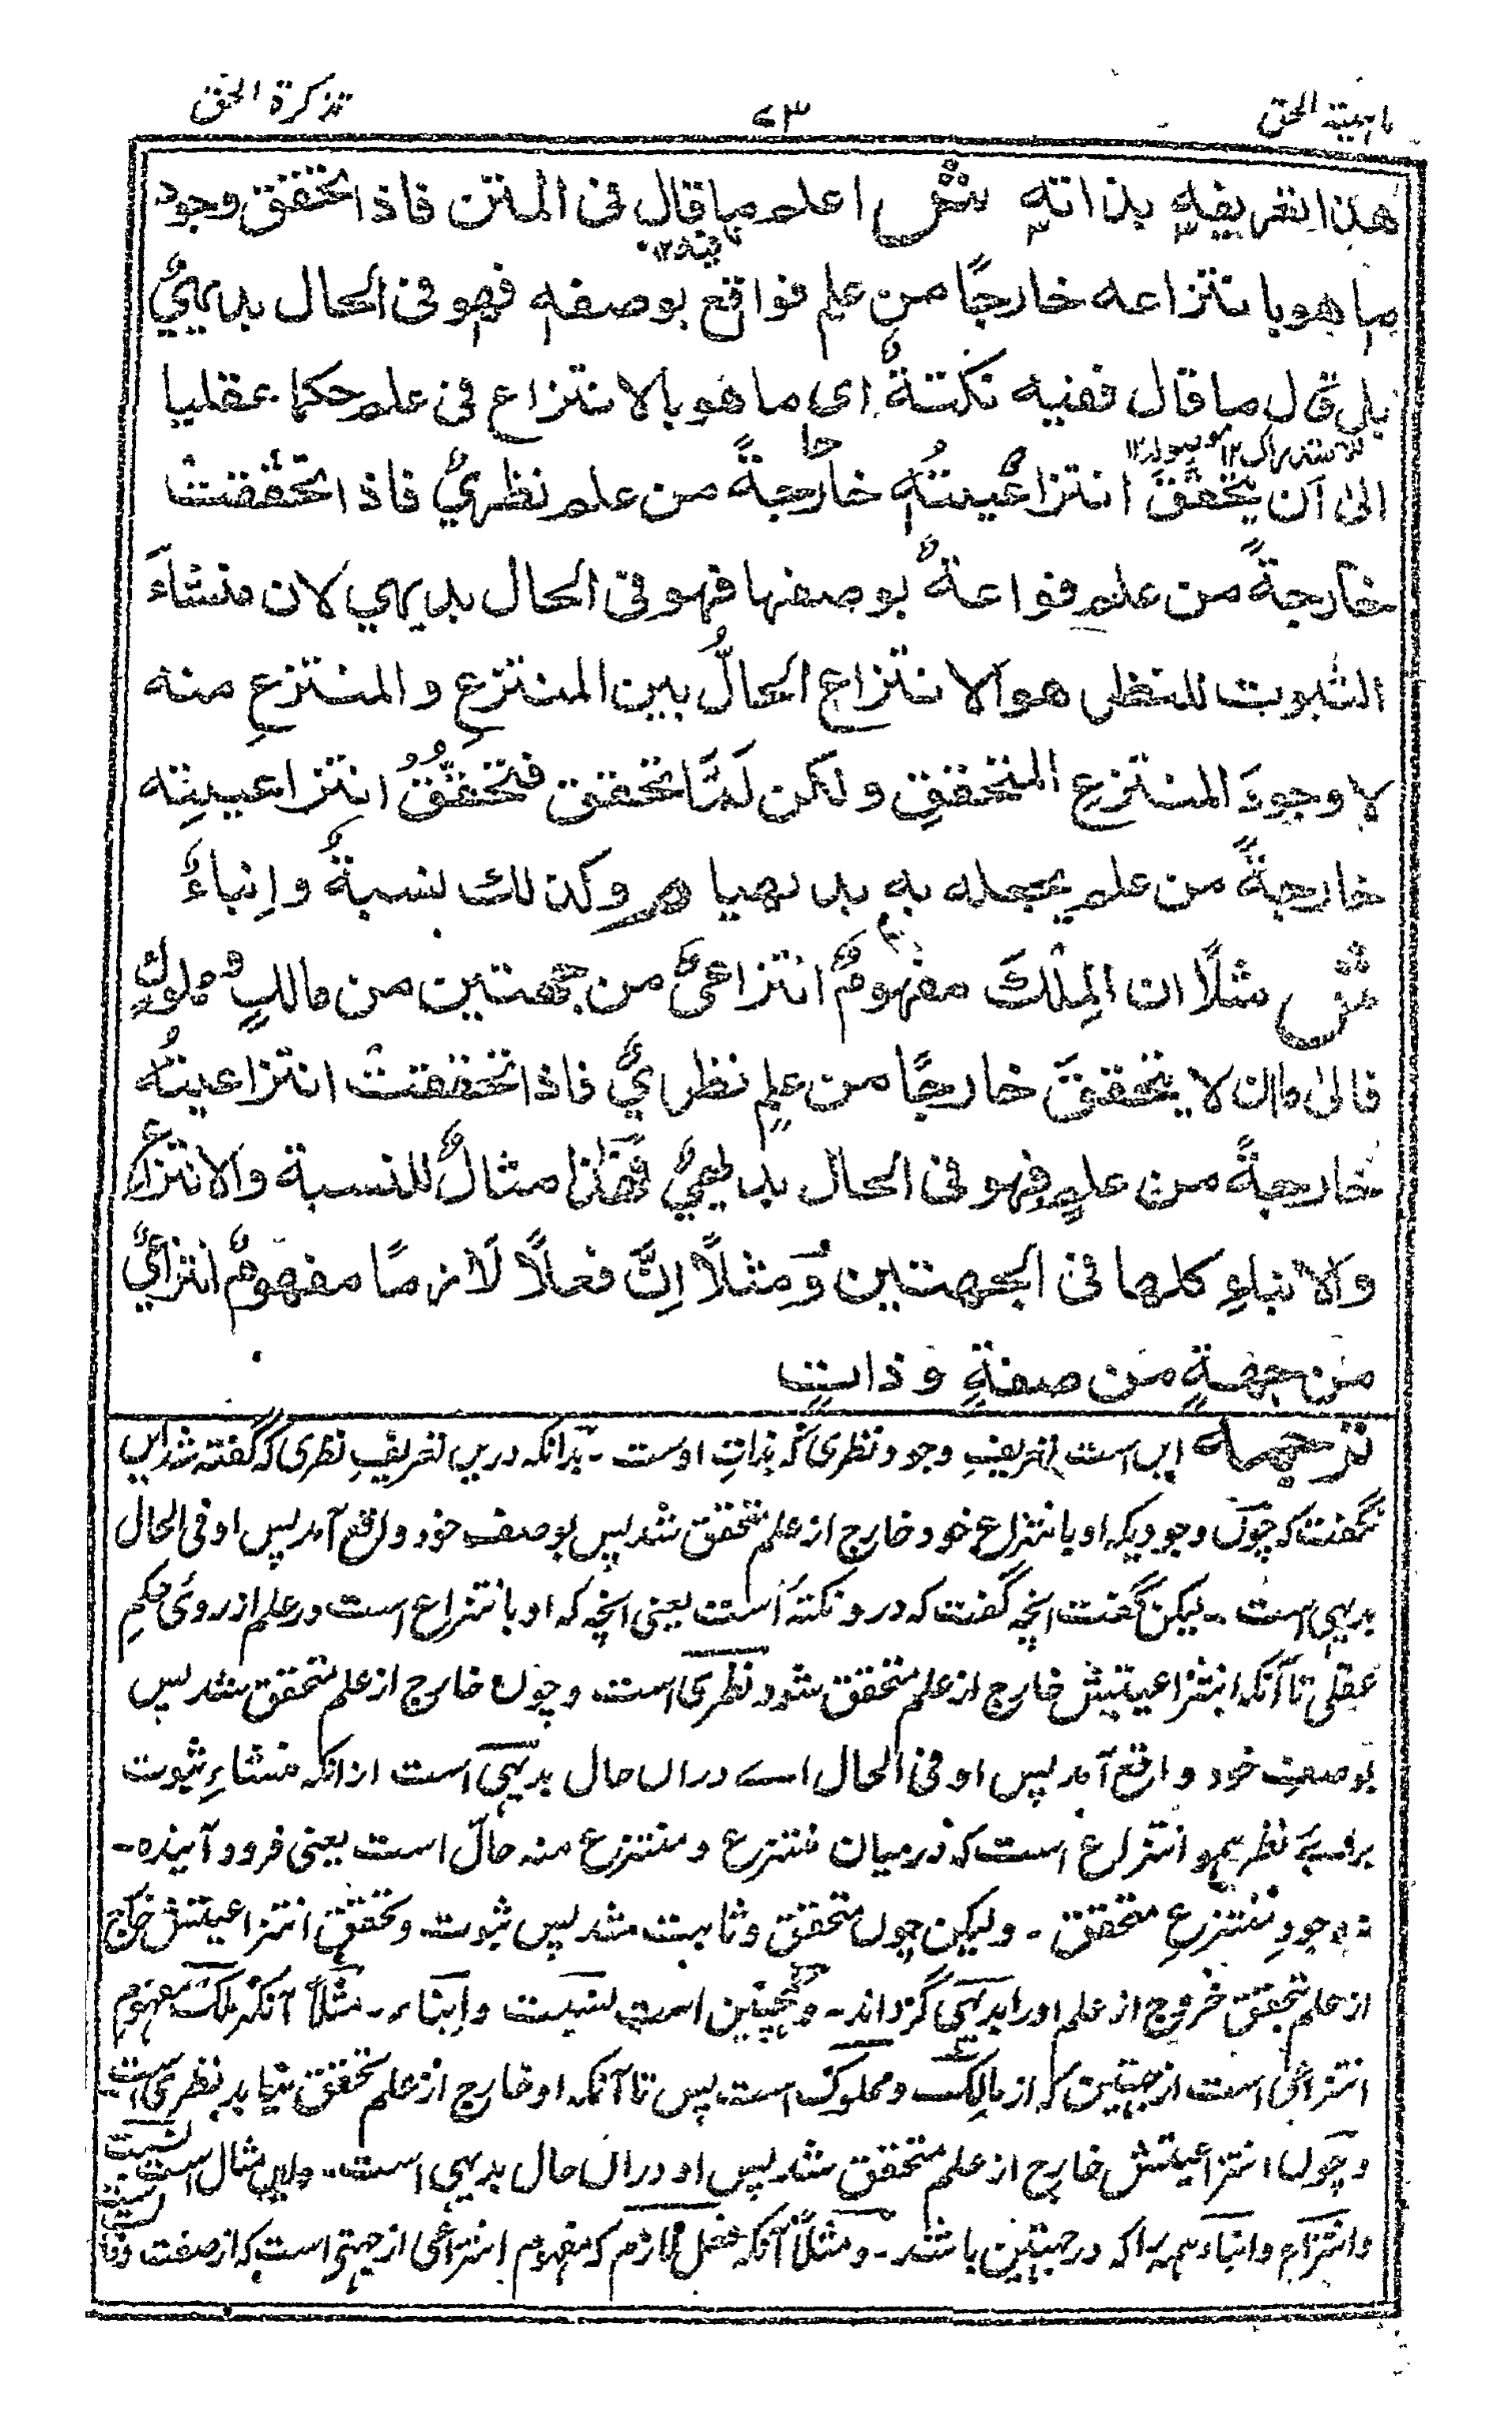 ماہیۃ الحق ۷۳ تذکرۃ الحق
هذا تعریفه بذاته ش اعلم ما قال فی المتن فاذا تحقق وجود
ما هو بانتزاعه خارجًا من علم فواقع بوصفه فهو فی الحال بدیهیٌّ
بل قال ما قال ففیه نکتةٌ ای ما هو بالانتزاع فی علم حکما عقلیا
الیٰ ان یتحققَ انتزاعیتُه خارجةً من علم نظریٌّ فاذا تحققتْ
خارجةً من علم فواعةٌ بوصفها فهو فی الحال بدیهی لان منشاءَ
الثبوت للنظر هو الانتزاع الحالُّ بین المنتزعِ والمنتزعِ منه
لا وجودَ المنتزعِ المتحققِ ولکن لَمَّا تحقق فتحقُّقُ انتزاعیتِه
خارجةً من علم یجعله به بدیهیا م وکذلك نسبةٌ وإنباءٌ
ش مثلًا ان المِلْكَ مفهومٌ انتزاعیٌّ من جهتین من مالكٍ ومملوكٍ
فالیٰ ما ان لا یتحققَ خارجًا من علمٍ نظریٌّ فاذا تحققتْ انتزاعیتُه
خارجةً من علمٍ فهو فی الحال بدیهیٌّ فهٰذا مثالٌ للنسبة والانتزاع
والانباءِ کلها فی الجهتین ومثلًا اِنَّ فعلًا لازمًا مفهومٌ انتزاعیٌّ
من جهةٍ من صفةٍ وذاتٍ
ترجمہ این است تعریفِ وجود نظری کہ بذاتِ اوست ۔ بدانکہ دریں تعریفِ نظری کہ گفتہ شد ایں
نگفت کہ چوں وجودیکہ او بانتزاعِ خود خارج از علم متحقق شد پس بوصف خود واقع آمد پس او فی الحال
بدیہی است ۔ لیکن گفت انچہ گفت کہ درو نکتہ است یعنی انچہ کہ او بانتزاع است در علم از روئی حکمِ
عقلی تا آنکہ انتزاعیتش خارج از علم متحقق شود نظری است و چوں خارج از علم متحقق شد پس
بوصف خود واقع آمد پس او فی الحال اے دراں حال بدیہی است ازانکہ منشاءِ ثبوت
برائے نظر ہمو انتزاع است کہ درمیان منتزع و منتزع منہ حالّ است یعنی فرود آیندہ ۔
نہ وجودِ منتزعِ متحقق ۔ ولیکن چوں متحقق و ثابت شد پس ثبوت و تحققِ انتزاعیتش خارج
از علم بتحقق خروج از علم اورا بدیہی گرداند ۔ و ہمچنین است نسبت و اِنباء ۔ مثلاً آنکہ مِلک مفہومِ
انتزاعی است از جہتین کہ از مالک و مملوک است پس تا آنکہ او خارج از علم تحقق نیابد نظری است
و چوں انتزاعیتش خارج از علم متحقق شد پس او دراں حال بدیہی است ۔ و این مثال است نسبت
و انتزاع و انباء ہمہ را کہ در جہتین باشد ۔ و مثلاً آنکہ فعل لازم کہ مفہوم انتزاعی از جہتی است کہ از صفت و ذات است